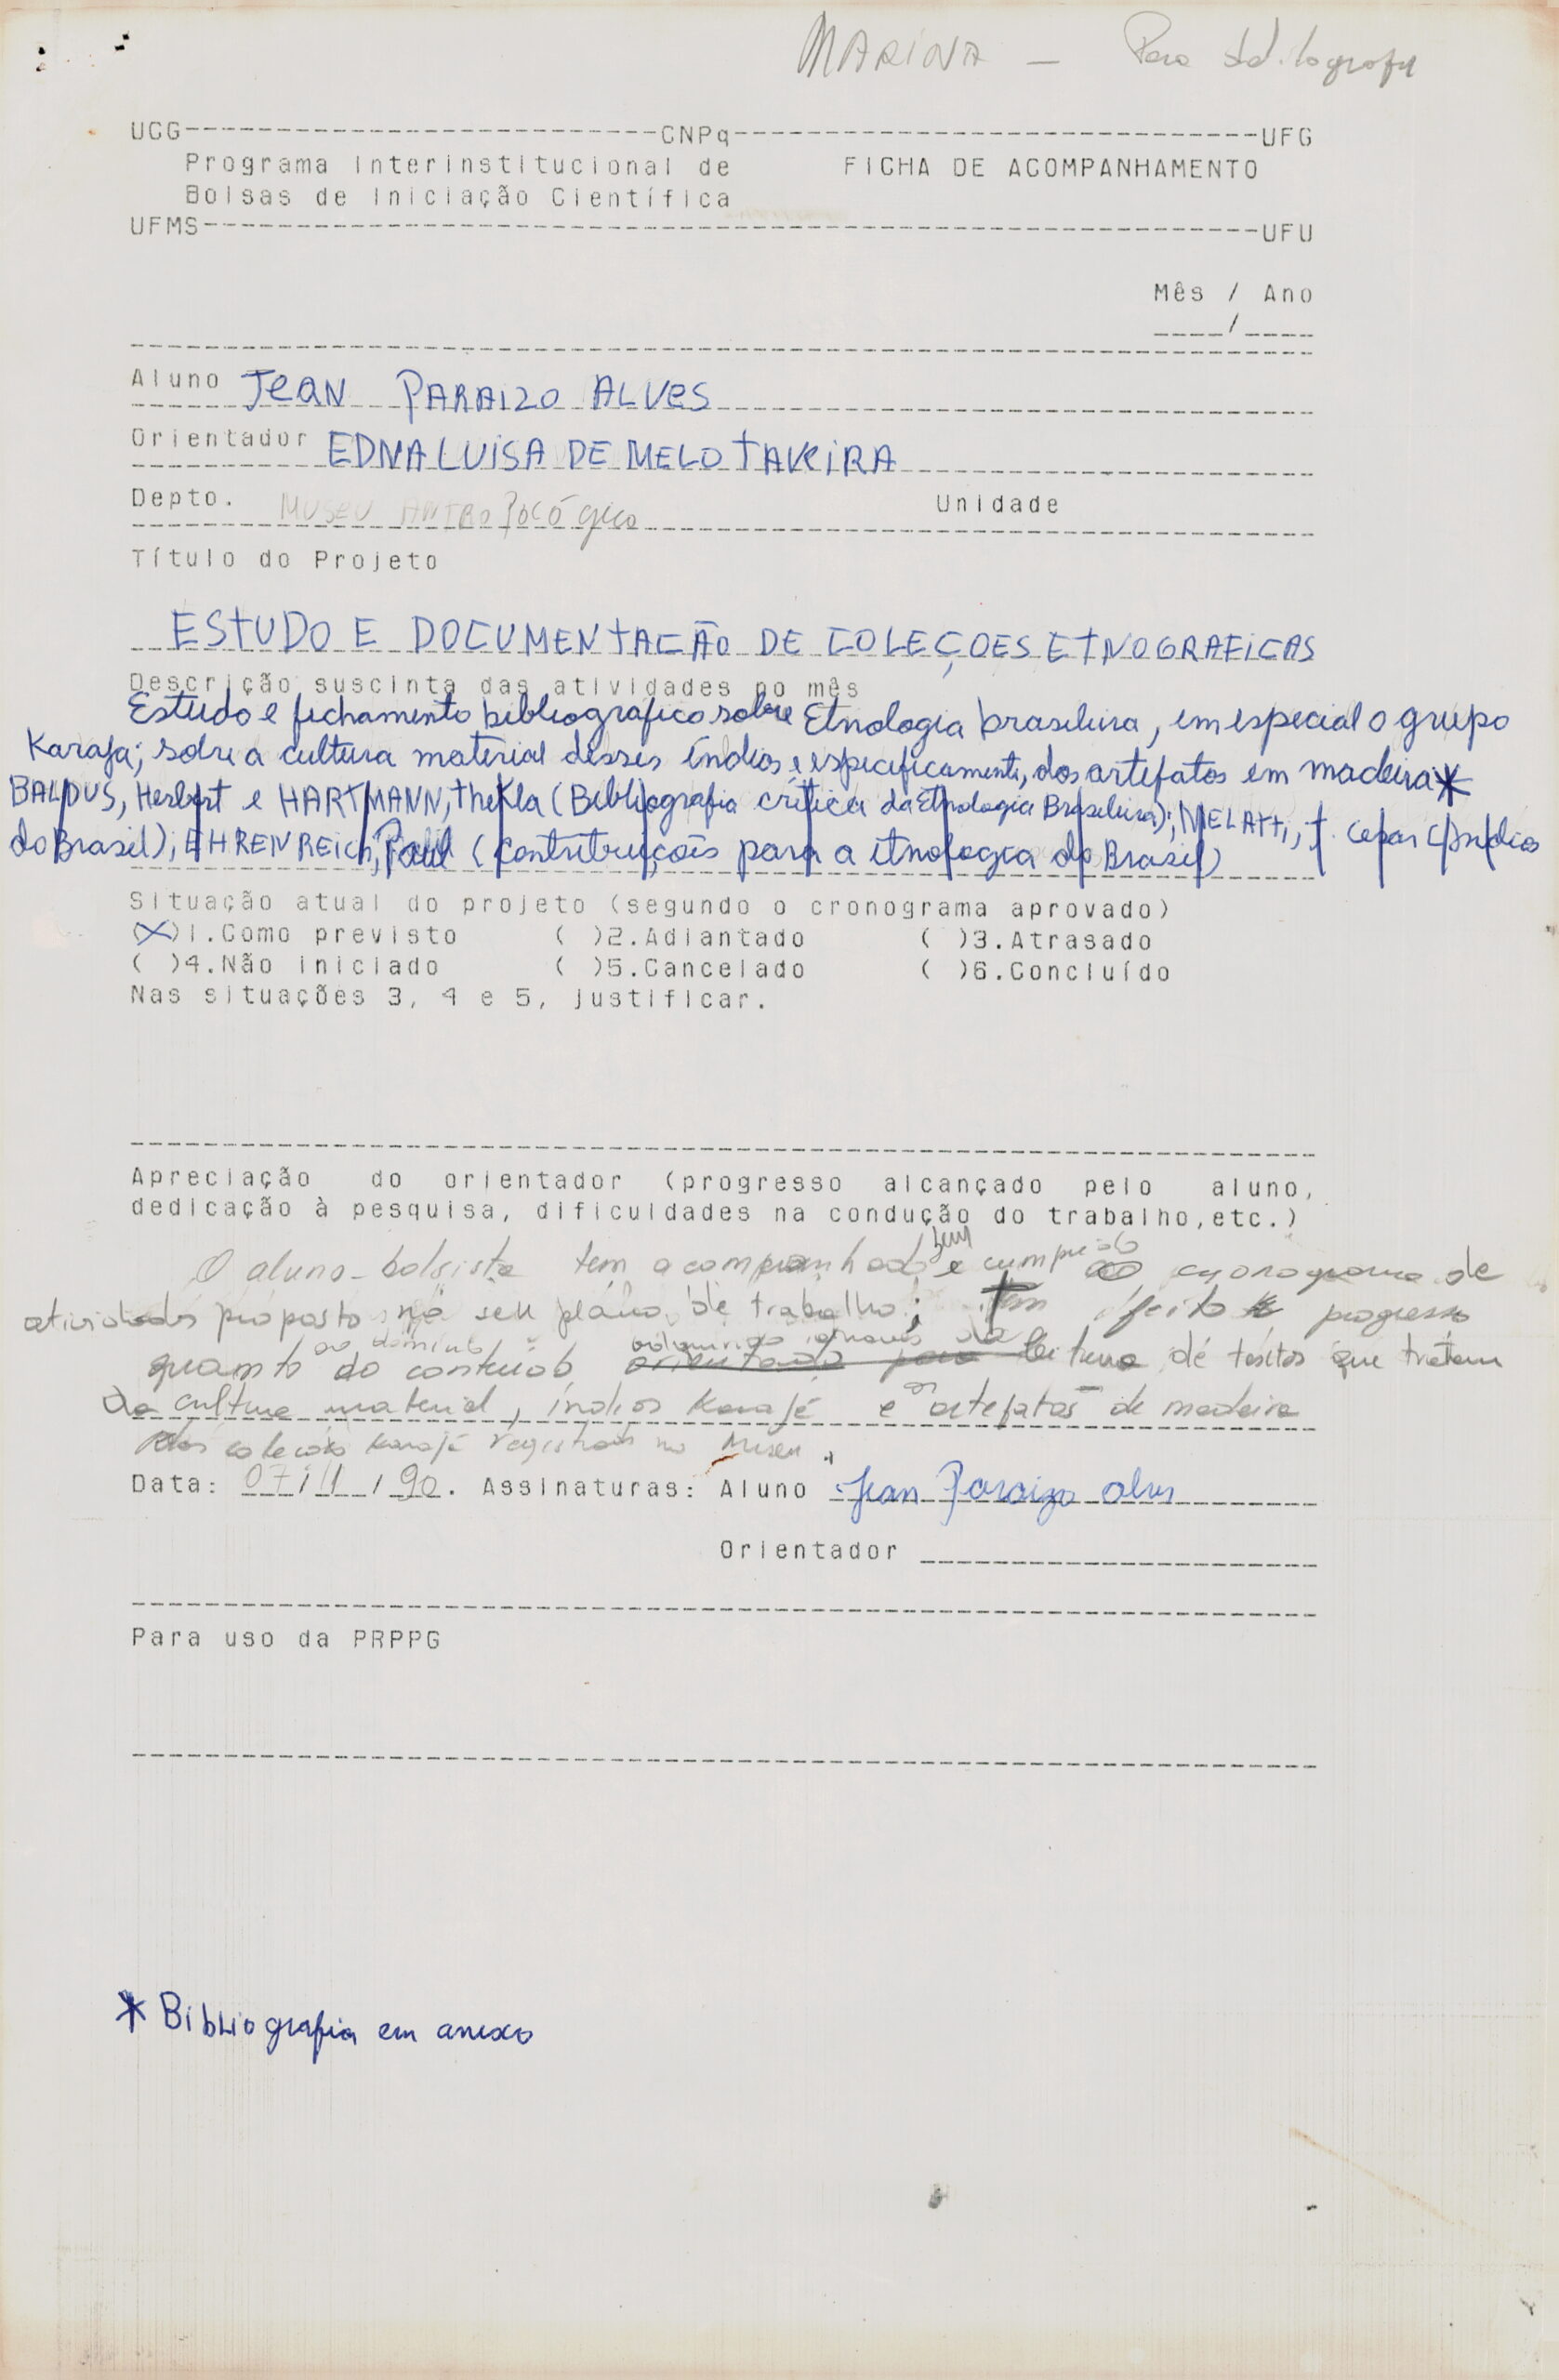 MARINA — Para datilografa
UCG--------------------------CNPq-----------------------------UFG
Programa Interinstitucional de FICHA DE ACOMPANHAMENTO
Bolsas de Iniciação Científica
UFMS----------------------------------------------------------UFU
Mês / Ano
____/____
Aluno JEAN PARAIZO ALVES
Orientador EDNA LUISA DE MELO TAVEIRA
Depto. MUSEU ANTROPOLÓGICO Unidade
Título do Projeto
ESTUDO E DOCUMENTAÇÃO DE COLEÇOES ETNOGRAFICAS
Descrição suscinta das atividades no mês
Estudo e fichamento bibliografico sobre Etnologia brasileira, em especial o grupo
Karaja; sobre a cultura material desses índios e, especificamente, dos artefatos em madeira*
BALDUS, Herbert e HARTMANN, Thekla (Bibliografia crítica da Etnologia Brasileira); MELATTI, J. Cesar (Indios
do Brasil); EHRENREICH, Paul (Contribuições para a etnologia do Brasil)
Situação atual do projeto (segundo o cronograma aprovado)
(X)1.Como previsto ( )2.Adiantado ( )3.Atrasado
( )4.Não iniciado ( )5.Cancelado ( )6.Concluído
Nas situações 3, 4 e 5, justificar.
Apreciação do orientador (progresso alcançado pelo aluno,
dedicação à pesquisa, dificuldades na condução do trabalho,etc.)
O aluno-bolsista tem acompanhado bem e cumprido o cronograma de
atividades proposto no seu plano de trabalho; tem feito progresso
quanto ao domínio do conteúdo adquirido através da leitura de textos que tratam
da cultura material, índios Karajá e os artefatos de madeira
das coleções Karajá registradas no Museu.
Data: 07/11/90. Assinaturas: Aluno Jean Paraizo Alves
Orientador
Para uso da PRPPG
* Bibliografia em anexo